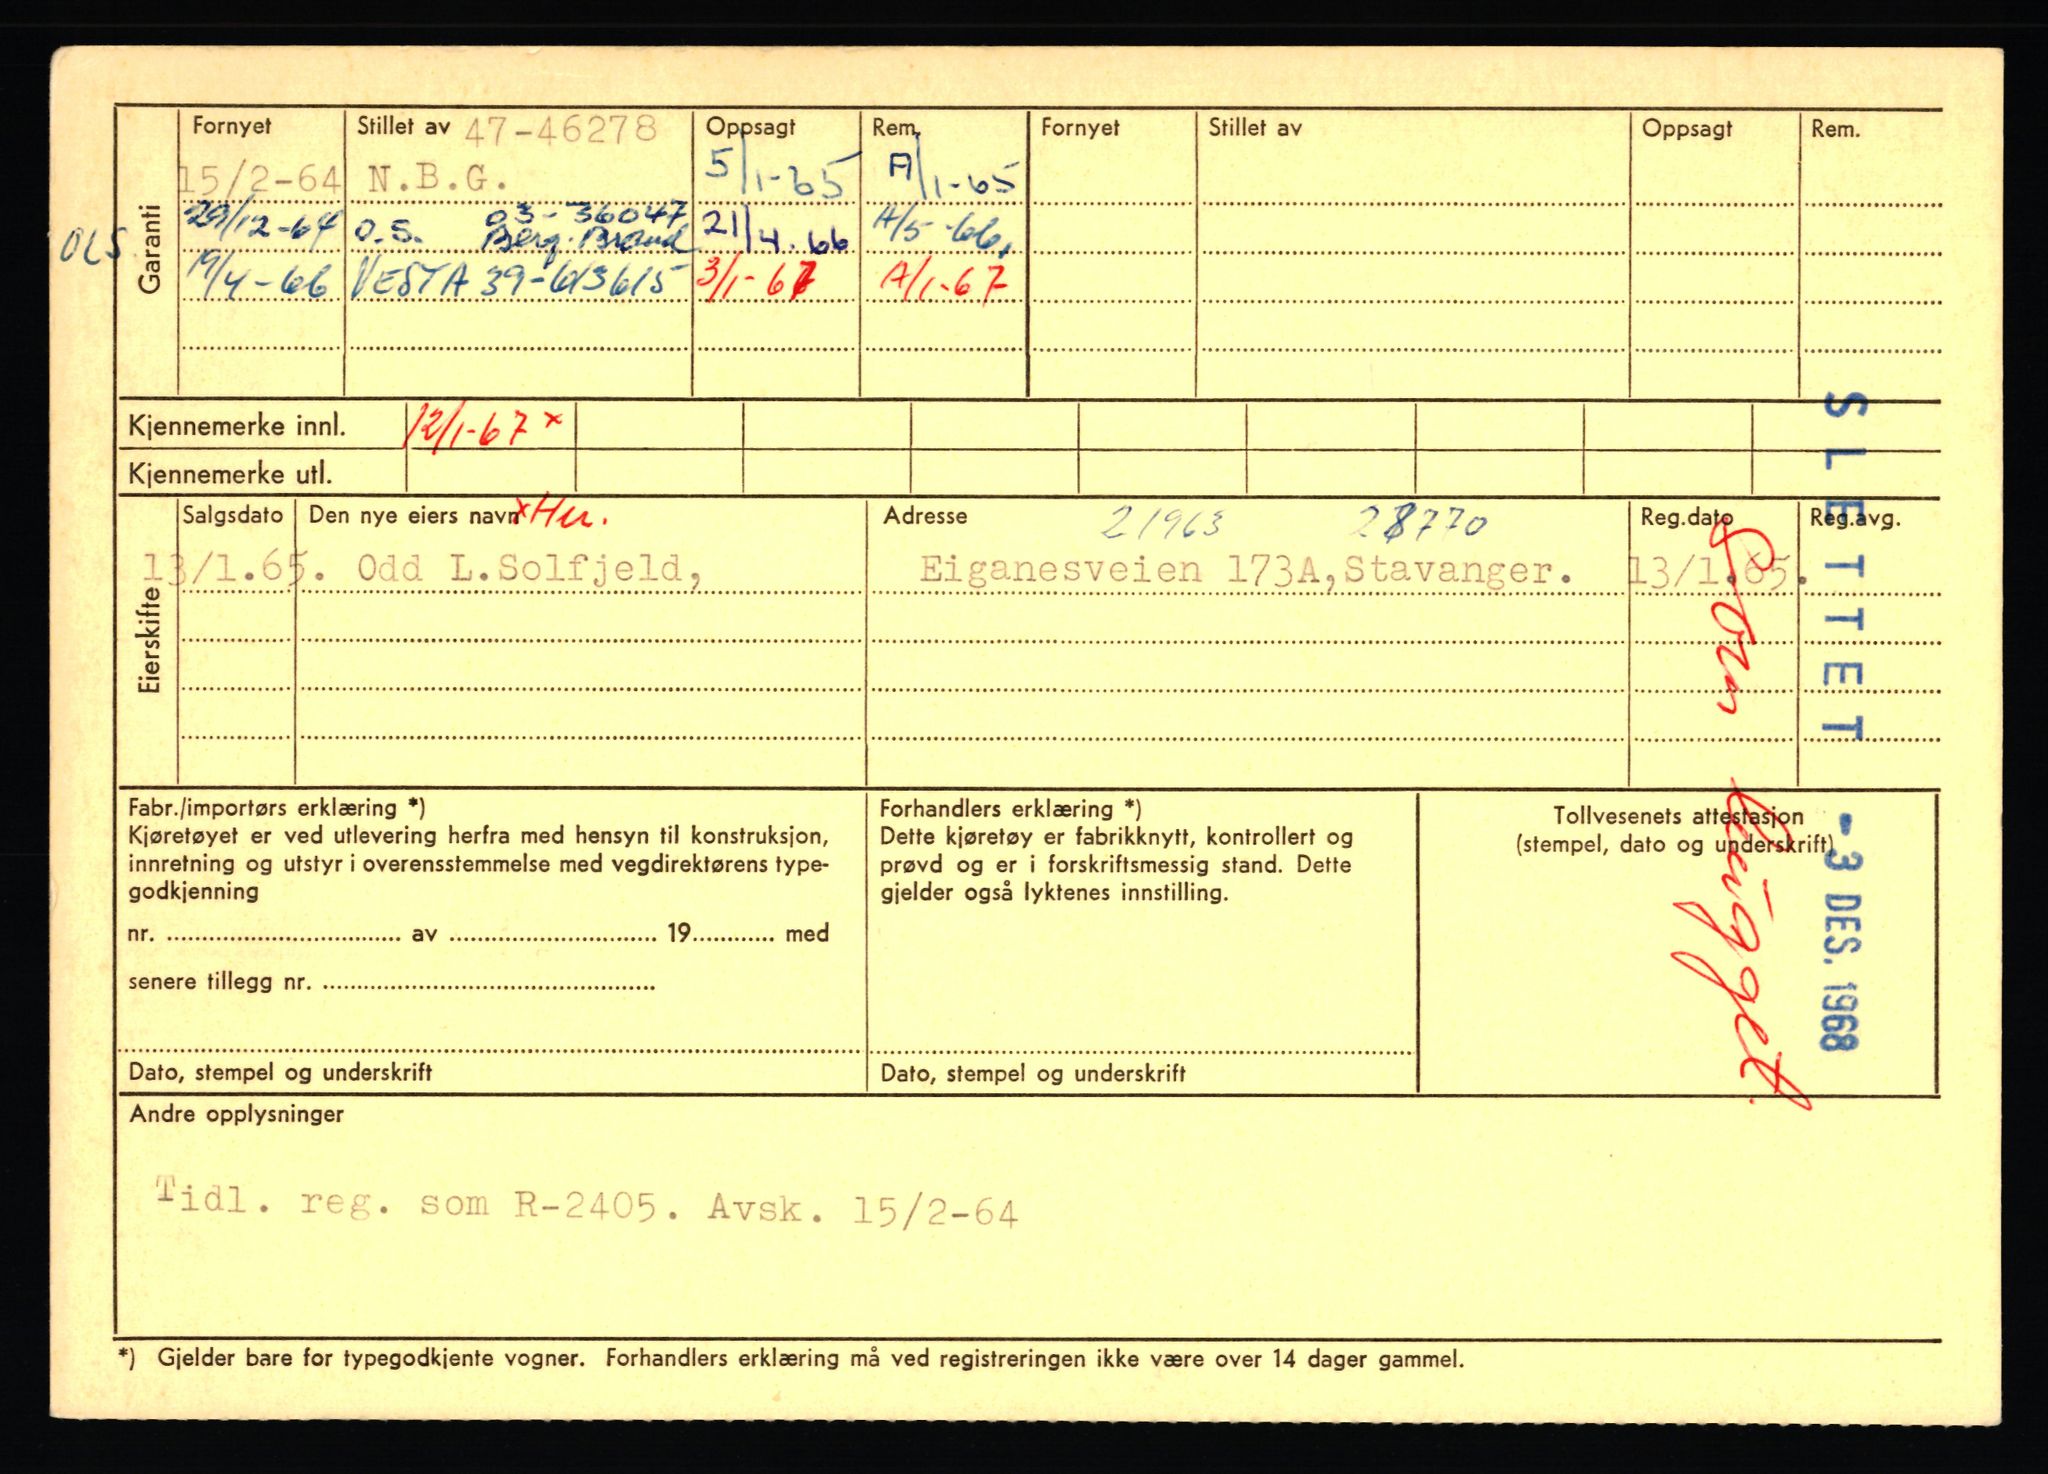 Garanti
Fornyet Stillet av 47-46278 Oppsagt Rem. Fornyet Stillet av Oppsagt Rem.
15/2-64 N.B.G. 5/1-65 A/1-65
29/12-64 O.S. 03-36047 Berg. Brand 21/4.66 A/5-66,
OLS 19/4-66 VESTA 39-613615 3/1-67 A/1-67
Kjennemerke innl. 12/1-67 x
Kjennemerke utl.
Eierskifte
Salgsdato Den nye eiers navn x Hu. Adresse 21963 28770 Reg.dato Reg.avg.
13/1.65. Odd L.Solfjeld, Eiganesveien 173A, Stavanger. 13/1.65.
SLETTET
- 3 DES. 1968
Fabr./importørs erklæring *)
Kjøretøyet er ved utlevering herfra med hensyn til konstruksjon,
innretning og utstyr i overensstemmelse med vegdirektørens type-
godkjenning
nr. .................... av .................... 19............ med
senere tillegg nr. ....................
Dato, stempel og underskrift
Forhandlers erklæring *)
Dette kjøretøy er fabrikknytt, kontrollert og
prøvd og er i forskriftsmessig stand. Dette
gjelder også lyktenes innstilling.
Dato, stempel og underskrift
Tollvesenets attestasjon
(stempel, dato og underskrift)
Andre opplysninger
Tidl. reg. som R-2405. Avsk. 15/2-64
*) Gjelder bare for typegodkjente vogner. Forhandlers erklæring må ved registreringen ikke være over 14 dager gammel.